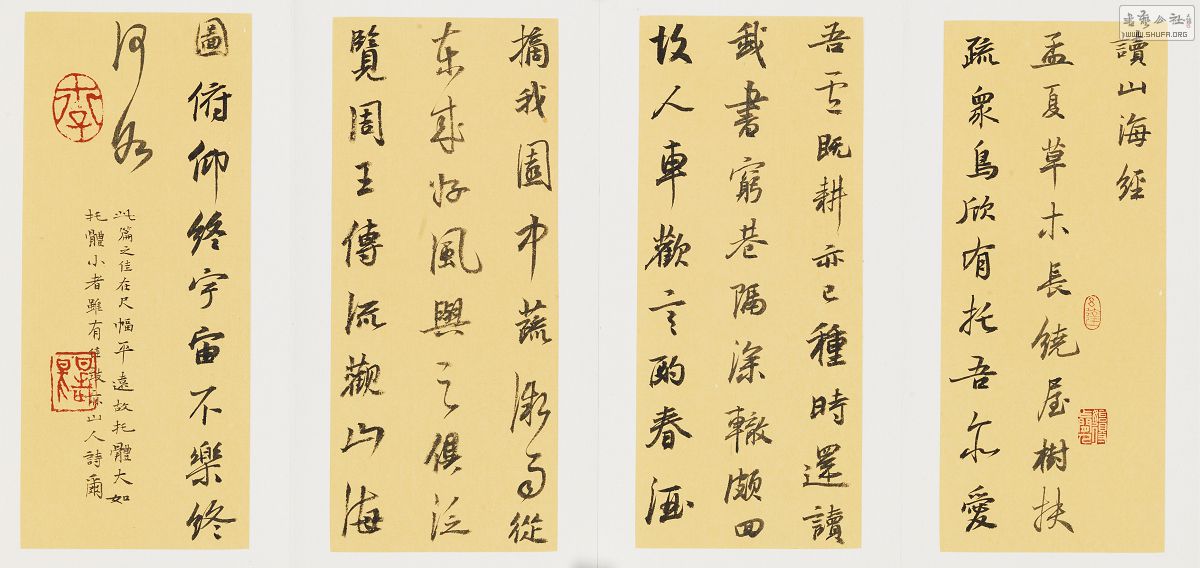 讀山海經
孟夏草木長繞屋樹扶
疏衆鳥欣有托吾亦愛
吾廬既耕亦已種時還讀
我書窮巷隔深轍頗回
故人車歡言酌春酒
摘我園中蔬微雨從
東來好風與之俱泛
覽周王傳流觀山海
圖俯仰終宇宙不樂終
何如
此篇之佳在尺幅平遠故托體大如
托體小者雖有佳致亦山人詩爾
書藝公社
WWW.SHUFA.ORG